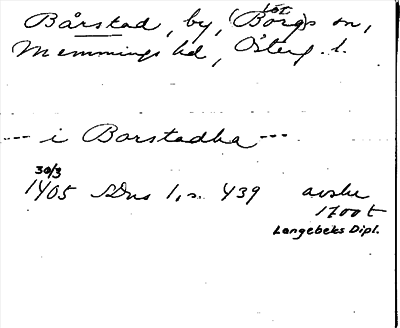 Bårstad, by, (Borgs sn,
löt
Memmings hd, Österg. l.
--- i Borstadha ---
30/3
1405 SDns 1, s. 439 avskr
1700 t
Langebeks Dipl.